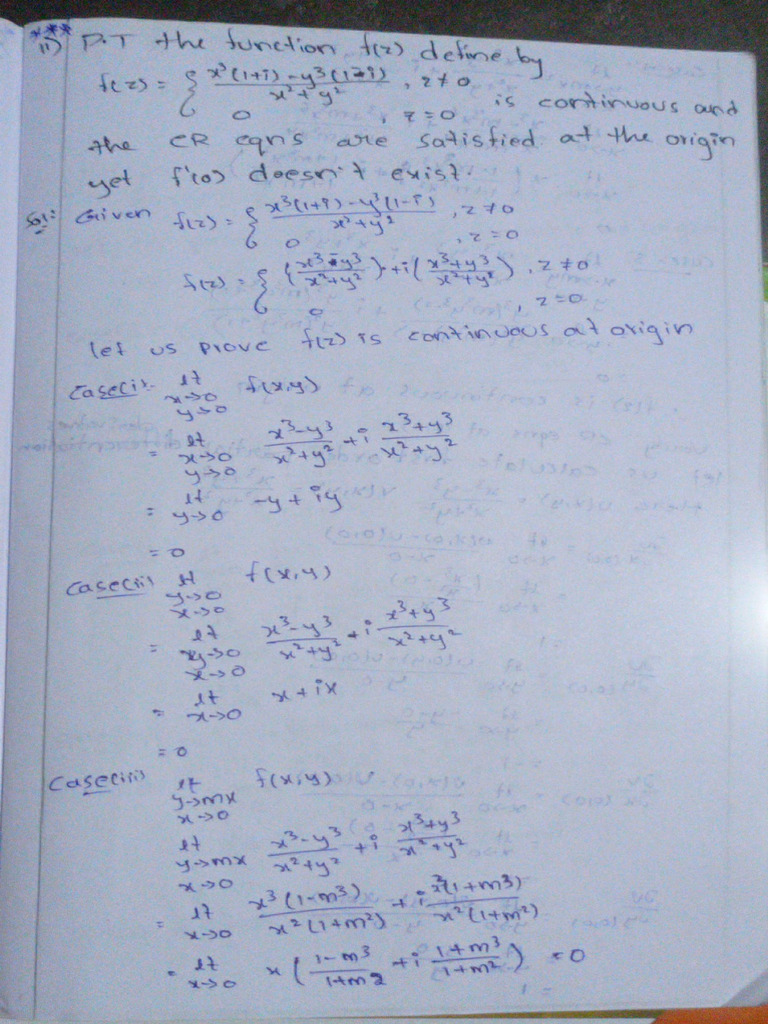 ***
11) P.T the function f(z) define by
f(z) = { x³(1+i) - y³(1-i) / x²+y² , z≠0
0 , z=0 is continuous and
the CR eqns are satisfied at the origin
yet f'(0) doesn't exist.
Sol: Given f(z) = { x³(1+i) - y³(1-i) / x²+y² , z≠0
0 , z=0
f(z) = { (x³-y³ / x²+y²) + i (x³+y³ / x²+y²) , z≠0
0 , z=0
let us prove f(z) is continuous at origin
Case(i):- lt x→0 y→0 f(x,y)
= lt x→0 y→0 x³-y³ / x²+y² + i x³+y³ / x²+y²
= lt y→0 -y + iy
= 0
Case(ii) lt y→0 x→0 f(x,y)
= lt y→0 x→0 x³-y³ / x²+y² + i x³+y³ / x²+y²
= lt x→0 x + ix
= 0
Case(iii) lt y→mx x→0 f(x,y)
lt y→mx x→0 x³-y³ / x²+y² + i x³+y³ / x²+y²
= lt x→0 x³(1-m³) / x²(1+m²) + i x³(1+m³) / x²(1+m²)
= lt x→0 x ( 1-m³ / 1+m2 + i 1+m³ / 1+m² ) = 0